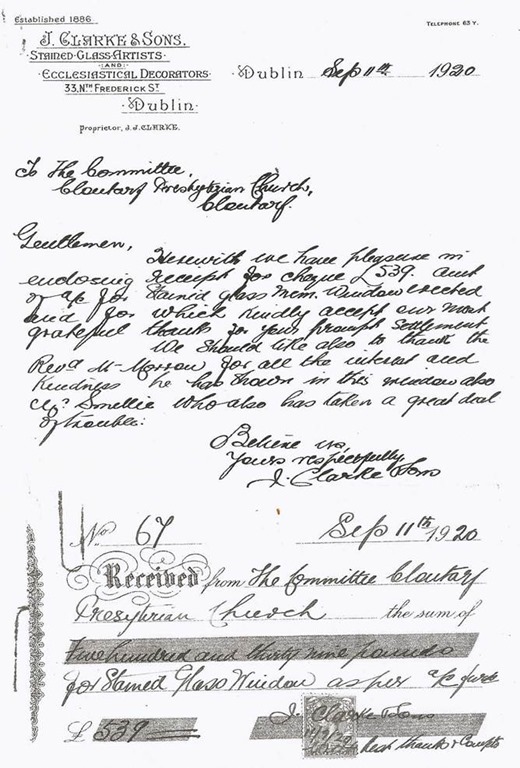 Established 1886
TELEPHONE 63 Y.
J. CLARKE & SONS,
STAINED GLASS ARTISTS
:AND:
ECCLESIASTICAL DECORATORS
33, NTH FREDERICK ST
Dublin
Proprietor, J.J. CLARKE.
Dublin Sep 11th 1920
To The Committee,
Clontarf Presbyterian Church,
Clontarf.
Gentlemen,
Herewith we have pleasure in
enclosing receipt for cheque £539. amt
of a/c for Stained glass Mem. Window erected
and for which kindly accept our most
grateful thanks for your prompt settlement
We should like also to thank the
Revd Mc Morrow for all the interest and
Kindness he has shown in this window also
Mr Smellie who also has taken a great deal
of trouble.
Believe us,
Yours respectfully,
J. Clarke & Sons
No 67
Sep 11th 1920
Received from The Committee Clontarf
Presbyterian Church the sum of
Five hundred and thirty nine pounds
for Stained Glass Window as per a/c furd
£ 539
J. Clarke & Sons
11/9/20
best thanks & Compts